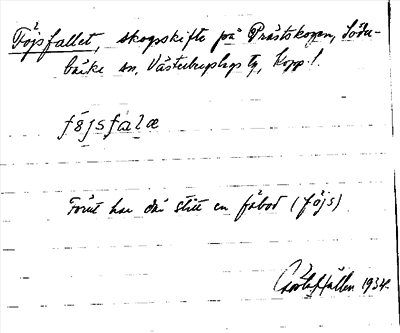 Föjsfallet, skogsskifte på Prästskogen, Söder-
bärke sn, Västerbergslags tg, Kopp. l.
föjsfalæ
Förut har där stått en fäbod (föjs)
Hållén 1934.